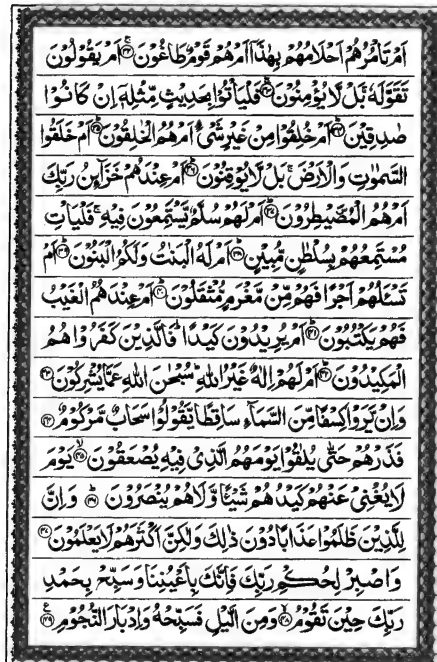 اَمْ تَاْمُرُهُمْ اَحْلَامُهُمْ بِهٰذَآ اَمْ هُمْ قَوْمٌ طَاغُوْنَ ۚ﴿۳۲﴾ اَمْ يَقُوْلُوْنَ
تَقَوَّلَهٗ ۚ بَلْ لَّا يُؤْمِنُوْنَ ۚ﴿۳۳﴾ فَلْيَاْتُوْا بِحَدِيْثٍ مِّثْلِهٖۤ اِنْ كَانُوْا
صٰدِقِيْنَ ؕ﴿۳۴﴾ اَمْ خُلِقُوْا مِنْ غَيْرِ شَيْءٍ اَمْ هُمُ الْخٰلِقُوْنَ ؕ﴿۳۵﴾ اَمْ خَلَقُوا
السَّمٰوٰتِ وَالْاَرْضَ ۚ بَلْ لَّا يُوْقِنُوْنَ ؕ﴿۳۶﴾ اَمْ عِنْدَهُمْ خَزَآئِنُ رَبِّكَ
اَمْ هُمُ الْمُصَۜيْطِرُوْنَ ؕ﴿۳۷﴾ اَمْ لَهُمْ سُلَّمٌ يَّسْتَمِعُوْنَ فِيْهِ ۚ فَلْيَاْتِ
مُسْتَمِعُهُمْ بِسُلْطٰنٍ مُّبِيْنٍ ؕ﴿۳۸﴾ اَمْ لَهُ الْبَنٰتُ وَلَكُمُ الْبَنُوْنَ ؕ﴿۳۹﴾ اَمْ
تَسْـَٔلُهُمْ اَجْرًا فَهُمْ مِّنْ مَّغْرَمٍ مُّثْقَلُوْنَ ؕ﴿۴۰﴾ اَمْ عِنْدَهُمُ الْغَيْبُ
فَهُمْ يَكْتُبُوْنَ ؕ﴿۴۱﴾ اَمْ يُرِيْدُوْنَ كَيْدًا ؕ فَالَّذِيْنَ كَفَرُوْا هُمُ
الْمَكِيْدُوْنَ ؕ﴿۴۲﴾ اَمْ لَهُمْ اِلٰهٌ غَيْرُ اللّٰهِ ؕ سُبْحٰنَ اللّٰهِ عَمَّا يُشْرِكُوْنَ ﴿۴۳﴾
وَاِنْ يَّرَوْا كِسْفًا مِّنَ السَّمَآءِ سَاقِطًا يَّقُوْلُوْا سَحَابٌ مَّرْكُوْمٌ ﴿۴۴﴾
فَذَرْهُمْ حَتّٰى يُلٰقُوْا يَوْمَهُمُ الَّذِيْ فِيْهِ يُصْعَقُوْنَ ۙ﴿۴۵﴾ يَوْمَ
لَا يُغْنِيْ عَنْهُمْ كَيْدُهُمْ شَيْـًٔا وَّلَا هُمْ يُنْصَرُوْنَ ؕ﴿۴۶﴾ وَاِنَّ
لِلَّذِيْنَ ظَلَمُوْا عَذَابًا دُوْنَ ذٰلِكَ وَلٰكِنَّ اَكْثَرَهُمْ لَا يَعْلَمُوْنَ ﴿۴۷﴾
وَاصْبِرْ لِحُكْمِ رَبِّكَ فَاِنَّكَ بِاَعْيُنِنَا وَسَبِّحْ بِحَمْدِ
رَبِّكَ حِيْنَ تَقُوْمُ ۙ﴿۴۸﴾ وَمِنَ الَّيْلِ فَسَبِّحْهُ وَاِدْبَارَ النُّجُوْمِ ﴿۴۹﴾ ع